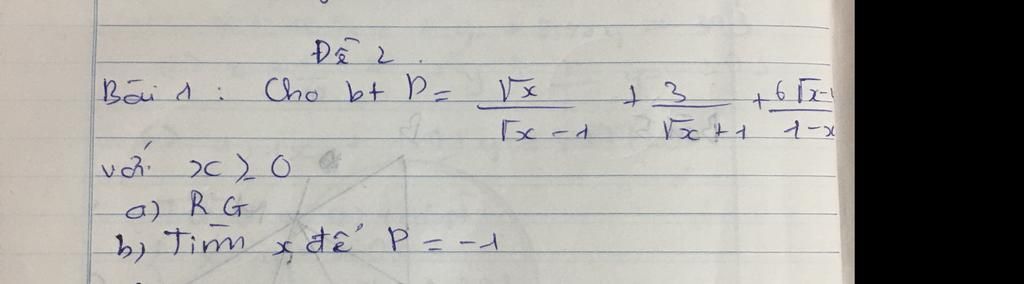 Đề 2.
Bài 1: Cho bt P = √x / (√x - 1) + 3 / (√x + 1) + (6√x - / (1 - x
với x ≥ 0
a) RG
b) Tìm x để P = -1